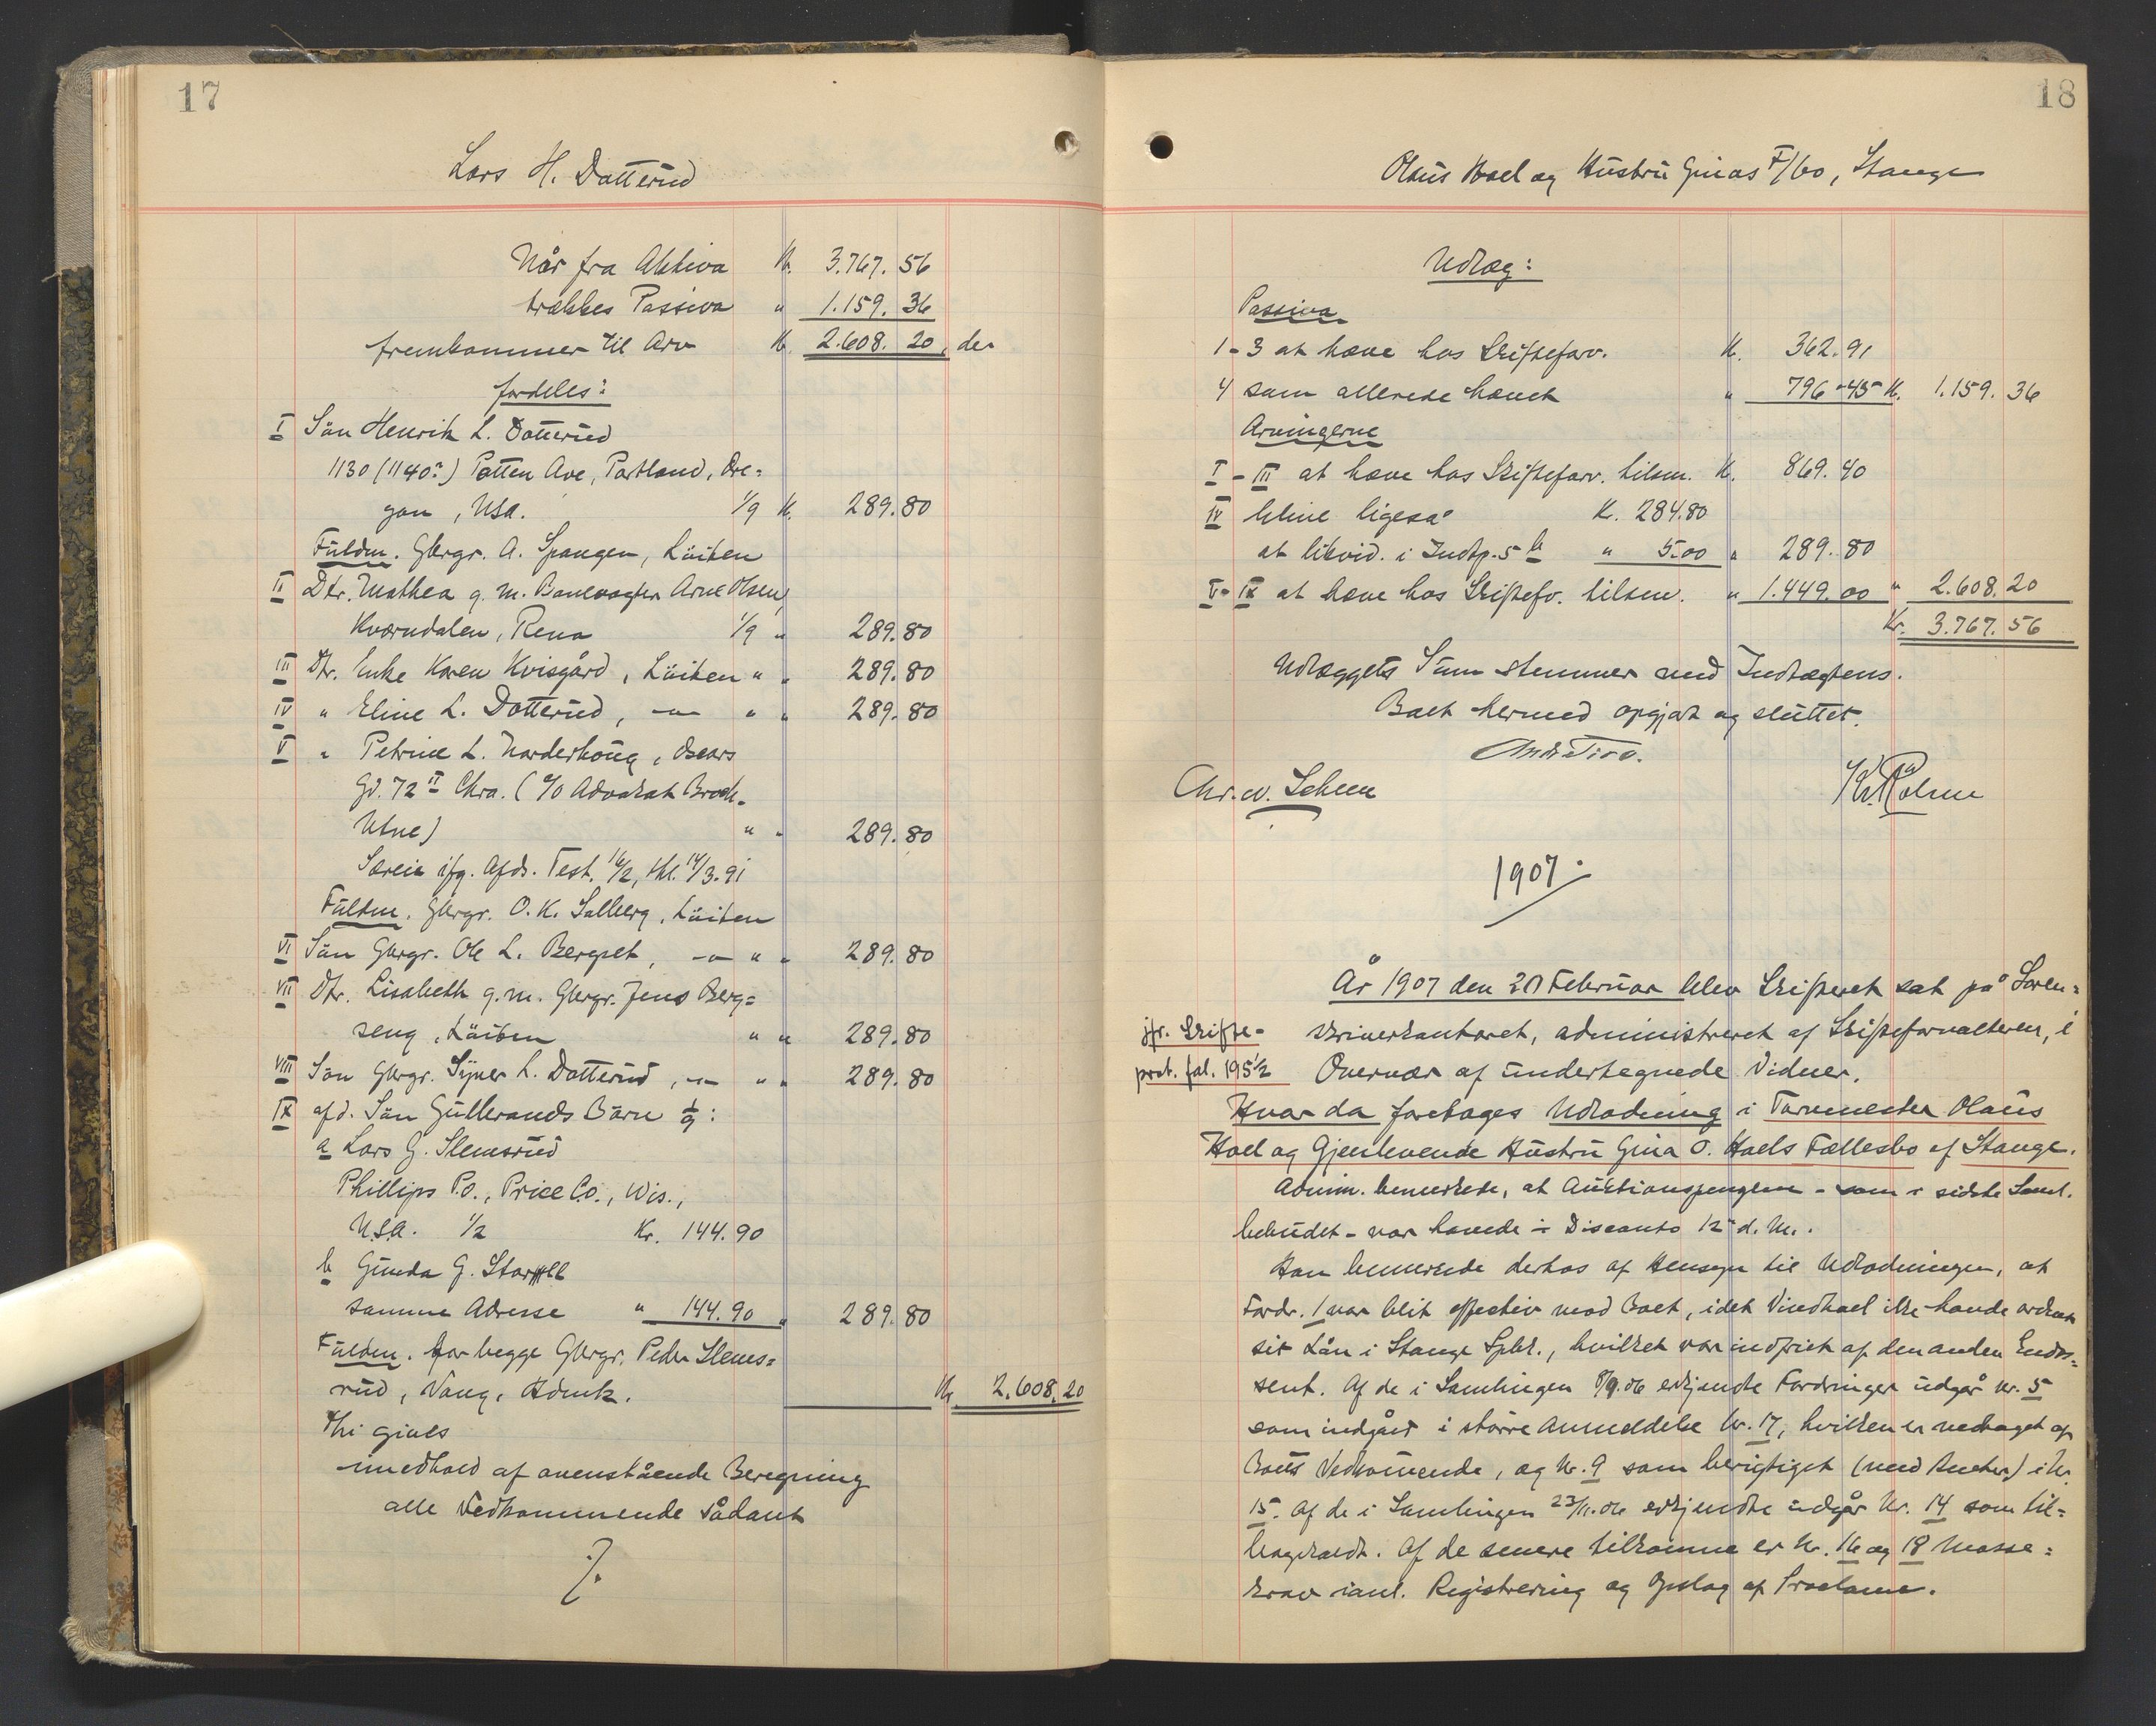 17
Lars H. Dotterud
Når fra Aktiva K. 3.767.56
trækkes Passiva " 1.159.36
fremkommer til Arv K. 2.608.20, der
fordeles:
I Sön Henrik L. Dotterud
1130 (1140?) Patten Ave, Portland, Ore=
gon, USA. 1/9 K. 289.80
Fuldm. Gbrgr. A. Spangen, Löiten
II Dtr. Mathea g. m. Banevogter Arne Olsen,
Kværndalen, Rena 1/9 " 289.80
III Dtr. Enke Karen Kvisgård, Löiten " " 289.80
IV " Eline L. Dotterud, -"- " " 289.80
V " Petrine L. Norderhoug, Oscars
Gd. 72 II Chra. (c/o Advokat Broch-
Utne) " " 289.80
Særeie ifg. Afds. Test. 16/2, thl. 14/3.91
Fuldm. Gbrgr. O. K. Salberg, Löiten
VI Sön Gbrgr. Ole L. Bergset, -"- " " 289.80
VII Dtr. Lisabeth g. m. Gbrgr. Jens Berg=
seng, Löiten " " 289.80
VIII Sön Gbrgr. Syver L. Dotterud, -"- " " 289.80
IX afd. Sön Gulbrands Börn 1/9:
a Lars G. Slemsrud
Phillips P.O., Price Co., Wis.,
U.S.A. 1/2 Kr. 144.90
b Gunda G.
samme Adresse " 144.90 " 289.80
Fuldm. for begge Gbrgr. Peder Slems=
rud, Vang, Hdmk. K. 2.608.20
Thi gives
i medhold af ovenstående Beregning
alle Vedkommende sådant
./.
18
Olaus Hoel og Hustru Ginas F/bo, Stange
Udlæg:
Passiva
1-3 at hæve hos Skiftefarv. K. 362.91
4 som allerede hævet " 796-45 K. 1.159.36
Arvingerne
I-III at hæve hos Skiftefarv. tilsm. K. 869.40
IV Eline ligeså K. 284.80
at likvid. i Indtp. 5 b " 5.00 " 289.80
V-IX at hæve hos Skiftefv. tilsm. " 1.449.00 " 2.608.20
Kr. 3.767.56
Udlæggets Sum stemmer med Indtægtens.
Boet hermed opgjort og sluttet.
Chr. W. Scheen
1907.
År 1907 den 20 Februar blev Skifteret sat på Soren=
jfr. Skifte-
prot. fol. 195 1/2
skriverkontoret, administreret af Skifteforvalteren, i
Overvær af undertegnede Vidner.
Hvor da foretoges Udlodning i Tørvmester Olaus
Hoel og Gjenlevende Hustru Gina O. Hoels Fællesbo af Stange.
Admin. bemerkede, at Auktionspengene - som i sidste Saml.
bebudet - var hævede i Disconto 12 d. M.
Han bemerkede derhos af Hensyn til Udlodningen, at
Fordr. 1 var blit effectiv mod Boet, idet Vindhoel ikke havde ordnet
sit Lån i Stange Spbk., hvilket var indfriet af den anden Endos=
sent. Af de i Samlingen 8/9.06 erkjendte Fordringer udgår Nr. 5
som indgået i större Anmeldelse Nr. 17, hvilken er vedtaget af
Boets Vedkommende, og Nr. 9 som berigtiget (med Renter) i Nr.
15. Af de i Samlingen 23/11.06 erkjendte udgår Nr. 14 som til=
bagekaldt. Af de senere tilkomne er Nr. 16 og 18 Masse=
krav i anl. Registrering og Opslag af Proclama.